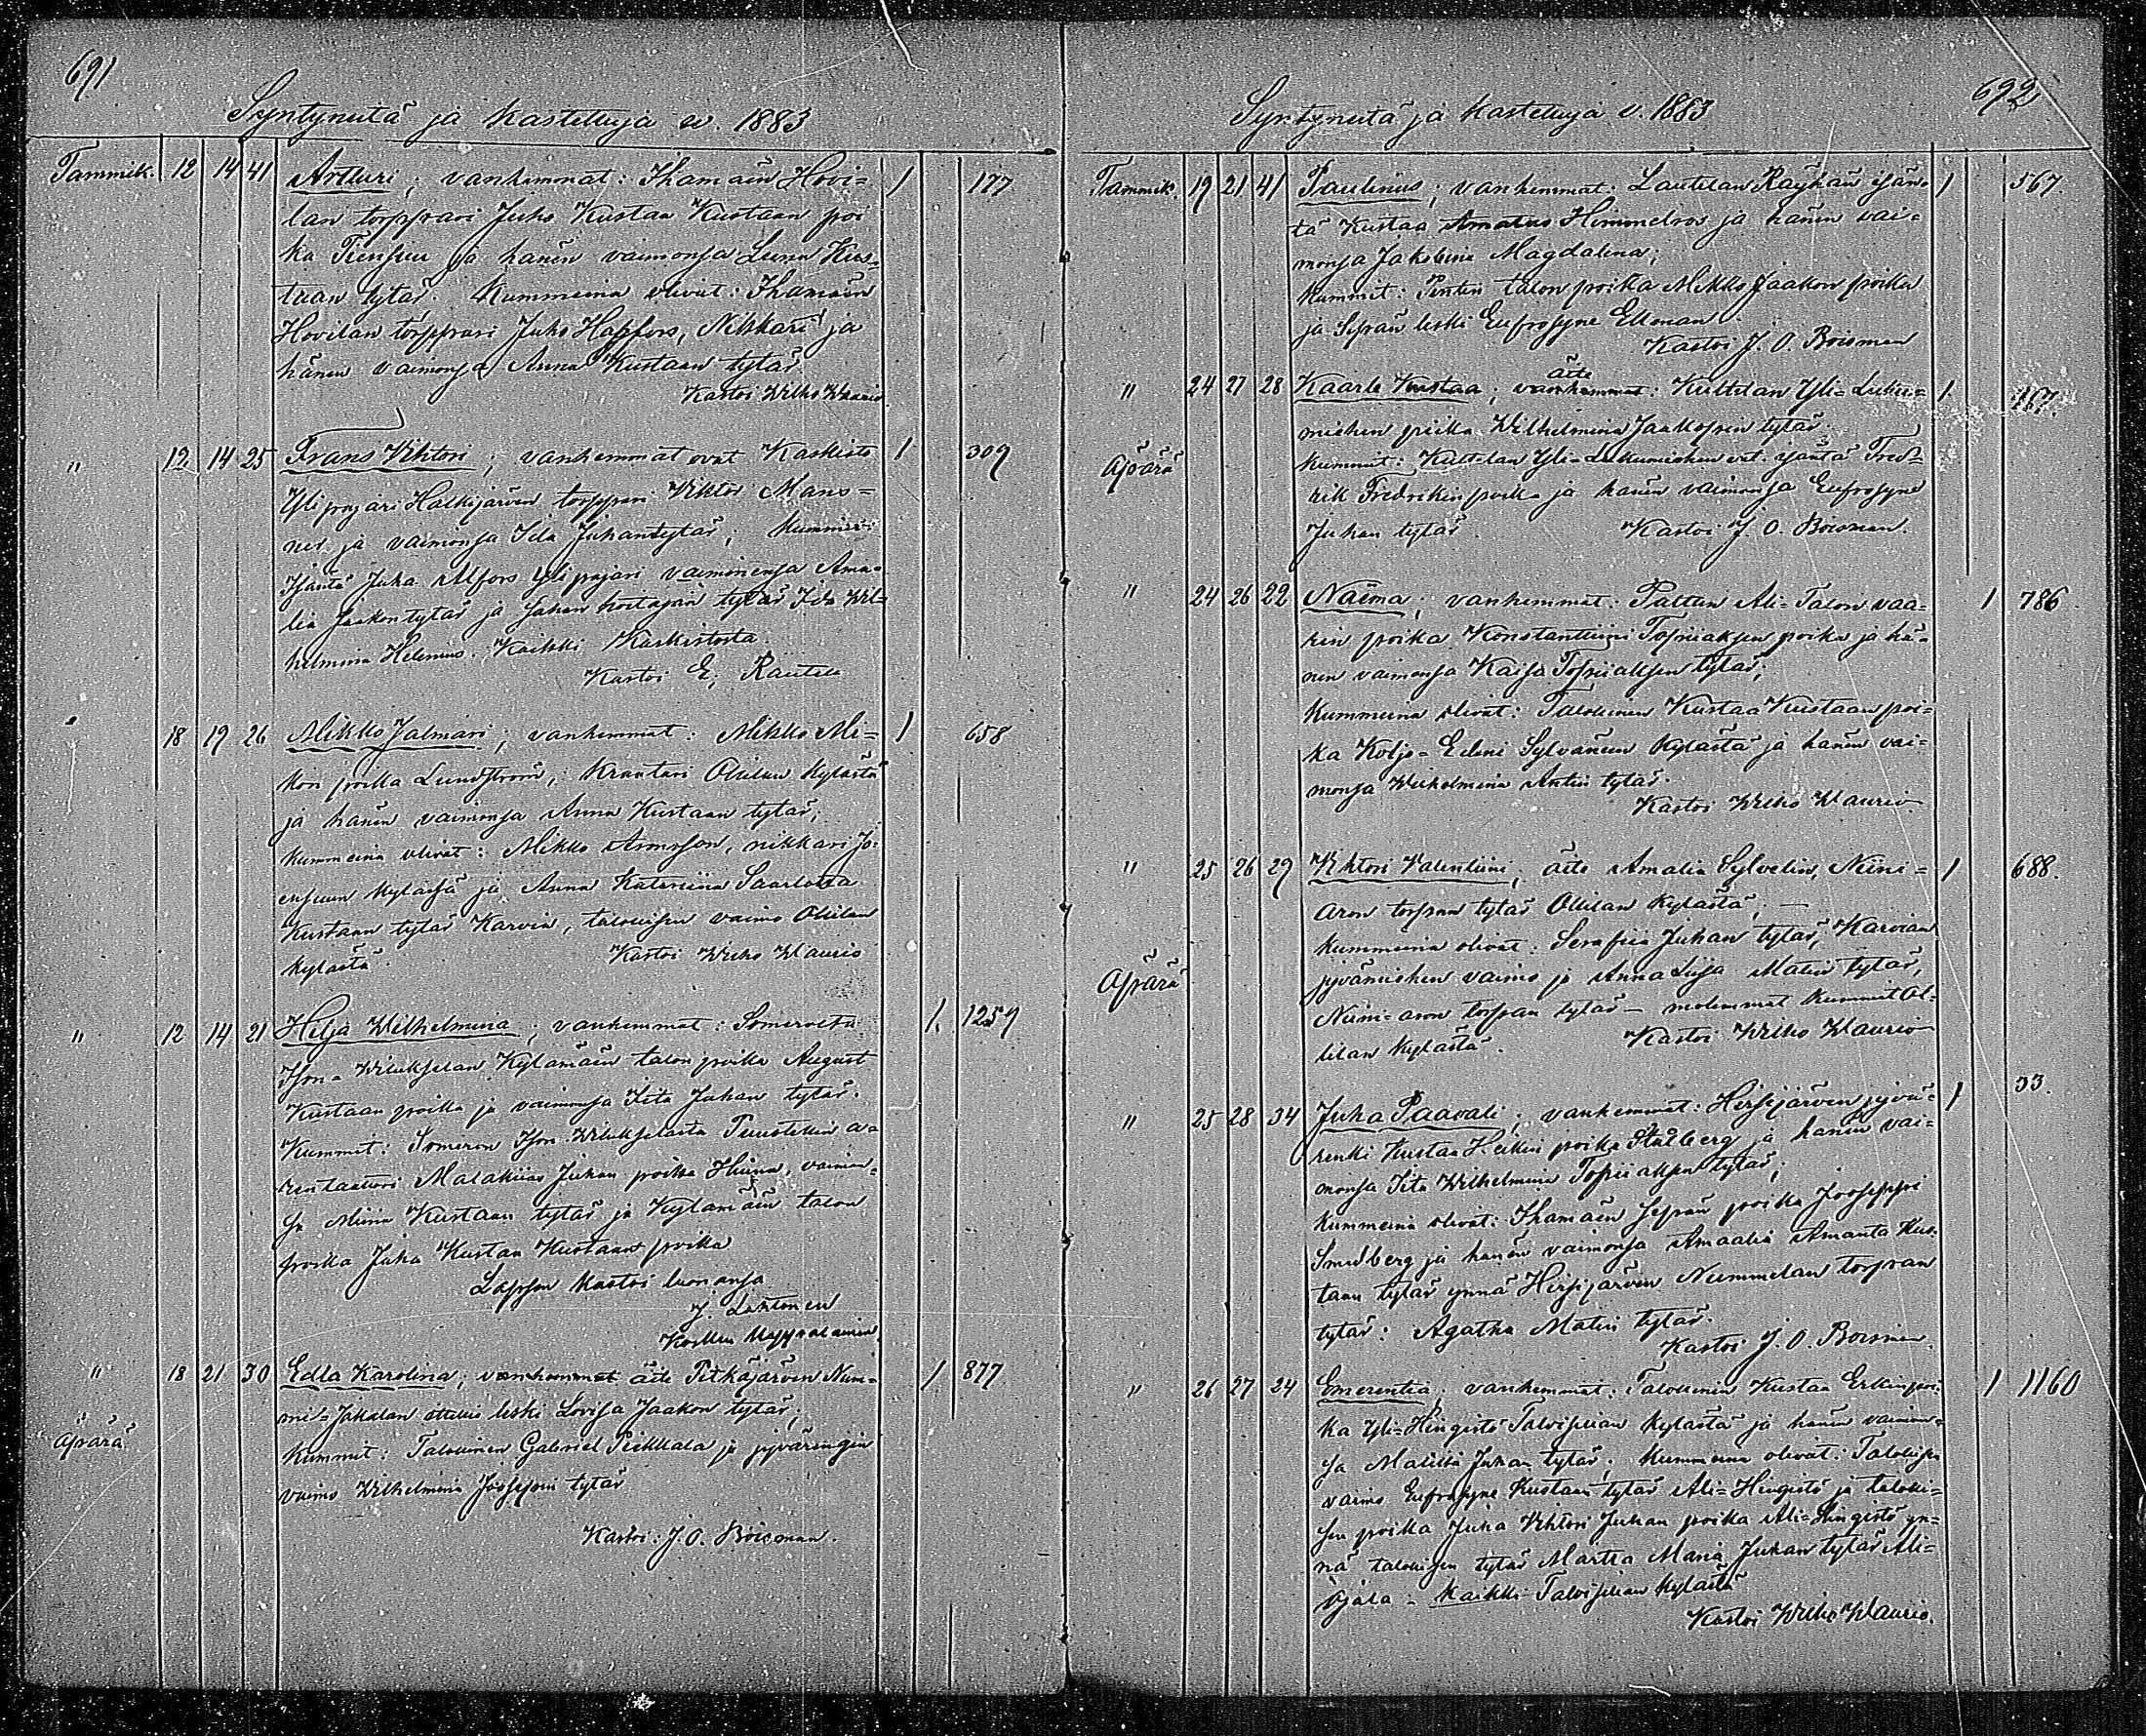 691
Syntyneitä ja kastettuja w. 1883
Tammik. 12 14 41 Artturi; vanhemmat: Ihamäen Hovi= 1 177
lan torppari Juho Kustaa Kustaan poi
ka Tiensuu ja hänen vaimonsa Leena Kus=
taan tytär. Kummeina olivat: Ihamäen
Hovilan torppari Juho Hapfors, Nikkari ja
hänen vaimonsa Anna Kustaan tytär.
Kastoi Wilho Waurio
" 12 14 25 Frans Vihtori; vanhemmat ovat Kaskisto 1 309
Ylipajari Halkijärven torppari Viktor Mans=
ner ja vaimonsa Ida Juhantytär; kummit:
Isäntä Juha Alfors Ylipajari vaimonensa Ama=
lia Jaakontytär ja Sahan hoitajan tytär Ida Wil=
helmina Helenius. Kaikki Kaskistosta.
Kastoi E. Rautela
" 18 19 26 Mikko Jalmari; vanhemmat: Mikko Mi= 1 658
kon poika Lundström, Kraatari Ollilan kylästä
ja hänen vaimonsa Anna Kustaan tytär;
kummeina olivat: Mikko Aronson, nikkari Jo=
ensuun kylässä ja Anna Katariina Saarlotta
Kustaan tytär Karvia, talollisen vaimo Ollilan
kylästä. Kastoi Wilho Waurio
" 12 14 21 Hilja Wilhelmina; vanhemmat: Somerolta 1. 1259
Ison-Wilukselan Kylämäen talon poika August
Kustaan poika ja vaimonsa Iita Juhan tytär.
Kummit: Someron Ison Wilukselasta Puustellin a=
rentaattori Malakias Juhan poika Huina, vaimon=
sa Miina Kustaan tytär ja Kylämäen talon
poika Juha Kustaa Kustaan poika
Lapsen kastoi luonansa
J. Lehtonen
" 18 21 30 Edla Karolina; vanhemmat äiti Pitkäjärven Num= 1 877
mi=Jakalan leski Lovisa Jaakon tytär;
Äpärä
Kummit: Talollinen Gabriel Pickkala ja jyvärengin
vaimo Wilhelmina Josefsson tytär
Kastoi: J. O. Boisman.
692
Syntyneitä ja kastettuja v. 1883
Tammik. 19 21 41 Paulinus; vanhemmat: Lautelan Räyhän isän= 1 567.
tä Kustaa Amatus Himondros ja hänen vai=
monsa Jakobina Magdalena;
kummit: Pentin talon poika Mikko Jaakon poika
ja Sepän leski Eufrosyne Ellonan
Kastoi J. O. Boisman
" 24 27 28 Kaarle Kustaa; vanhemmat äiti: Kultelan Yli= 1. 767.
miehen piika Wilhelmina Jaakopin tytär.
Äpärä
kummit: Kultelan Yli-Lukumiehen ent. isäntä Fred=
rik Fredrikin poika ja hänen vaimonsa Eufrosyne
Juhan tytär. Kastoi J. O. Boisman.
" 24 26 22 Naëma; vanhemmat: Paltan Ali-Talon vaa= 1 786
rin poika Konstantiini Topiiaksen poika ja hä=
nen vaimonsa Kaisa Topiiaksen tytär;
kummeina olivat: Talollinen Kustaa Kustaan poi=
ka Koljo-Eeleni Sylvänen kylästä ja hänen vai=
monsa Wilhelmina Antin tytär.
Kastoi Wilho Waurio
" 25 26 29 Vihtori Valentiini; äiti Amalia Sylvelin, Niini= 1 688.
aron torpan tytär Ollilan kylästä; —
kummeina olivat: Serafiia Juhan tytär, Karvian
Äpärä
jyvämiehen vaimo ja Anna Liisa Matin tytär,
Niini-aron torpan tytär – molemmat kummit Ol=
lilan kylästä. Kastoi Wilho Waurio
" 25 28 34 Juha Paavali; vanhemmat: Hirsijärven jyvä= 1 33.
renki Kustaa Heikin poika Stålberg ja hänen vai=
monsa Iita Wilhelmina Topiiaksen tytär;
kummeina olivat: Ihamäen Sepän poika Jooseppi
Smedberg ja hänen vaimonsa Amaalia Amanta Kus=
taan tytär ynnä Hirsijärven Nummelan torpan
tytär: Agatha Matin tytär.
Kastoi J. O. Boisman.
" 26 27 24 Emerentia; vanhemmat: Talollinen Kustaa Erkin poi= 1 1160
ka Yli-Hingistö Talvisillan kylästä ja hänen vaimon=
sa Matilta Juhan tytär; kummeina olivat: Talollisen
vaimo Eufrosyne Kustaan tytär Ali-Hingistö ja talolli=
sen poika Juha Vihtori Juhan poika Ali-Hingistö yn=
nä talollisen tytär Martta Maria Juhan tytär Ali=
Ojala - Kaikki Talvisillan kylästä
Kastoi Wilho Waurio.